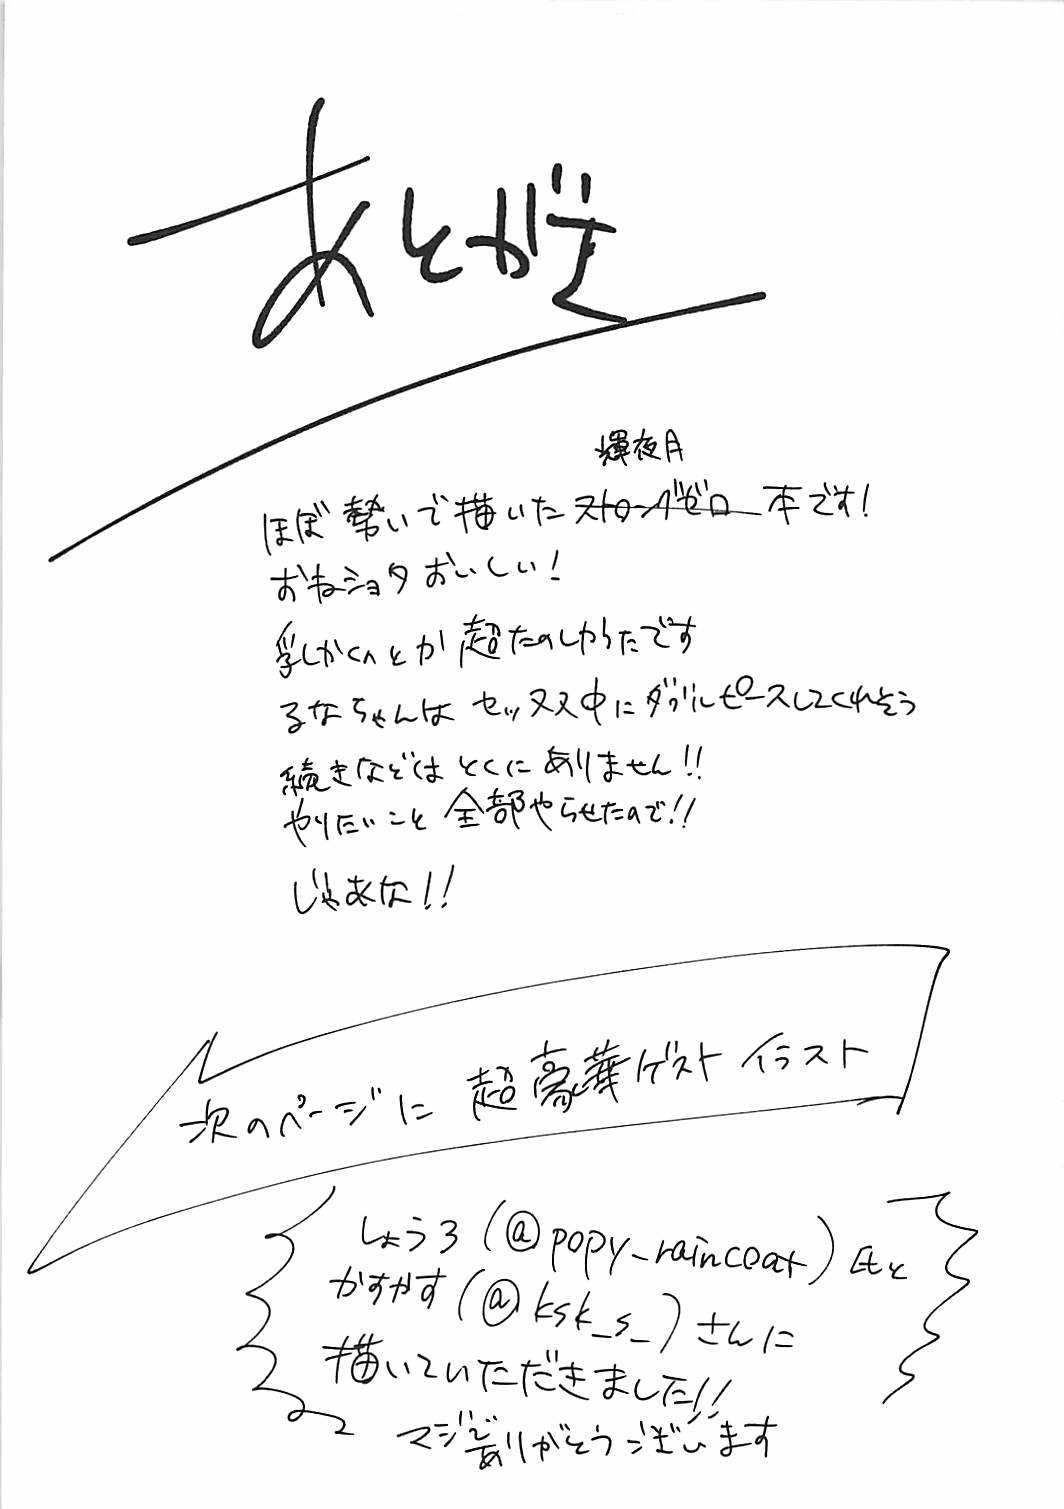 あとがき
輝夜月
ほぼ勢いで描いたストロングゼロ本です!
おねショタおいしい!
とか超たのしかったです
るなちゃんはセッヌヌ中にダブルピースしてくれそう
続きなどはとくにありません!!
やりたいこと全部やらせたので!!
じゃあな!!
次のページに超豪華ゲストイラスト
しょうろ(@popy_raincoat)氏と
かすかす(@ksk_s_)さんに
描いていただきました!!
マジでありがとうございます